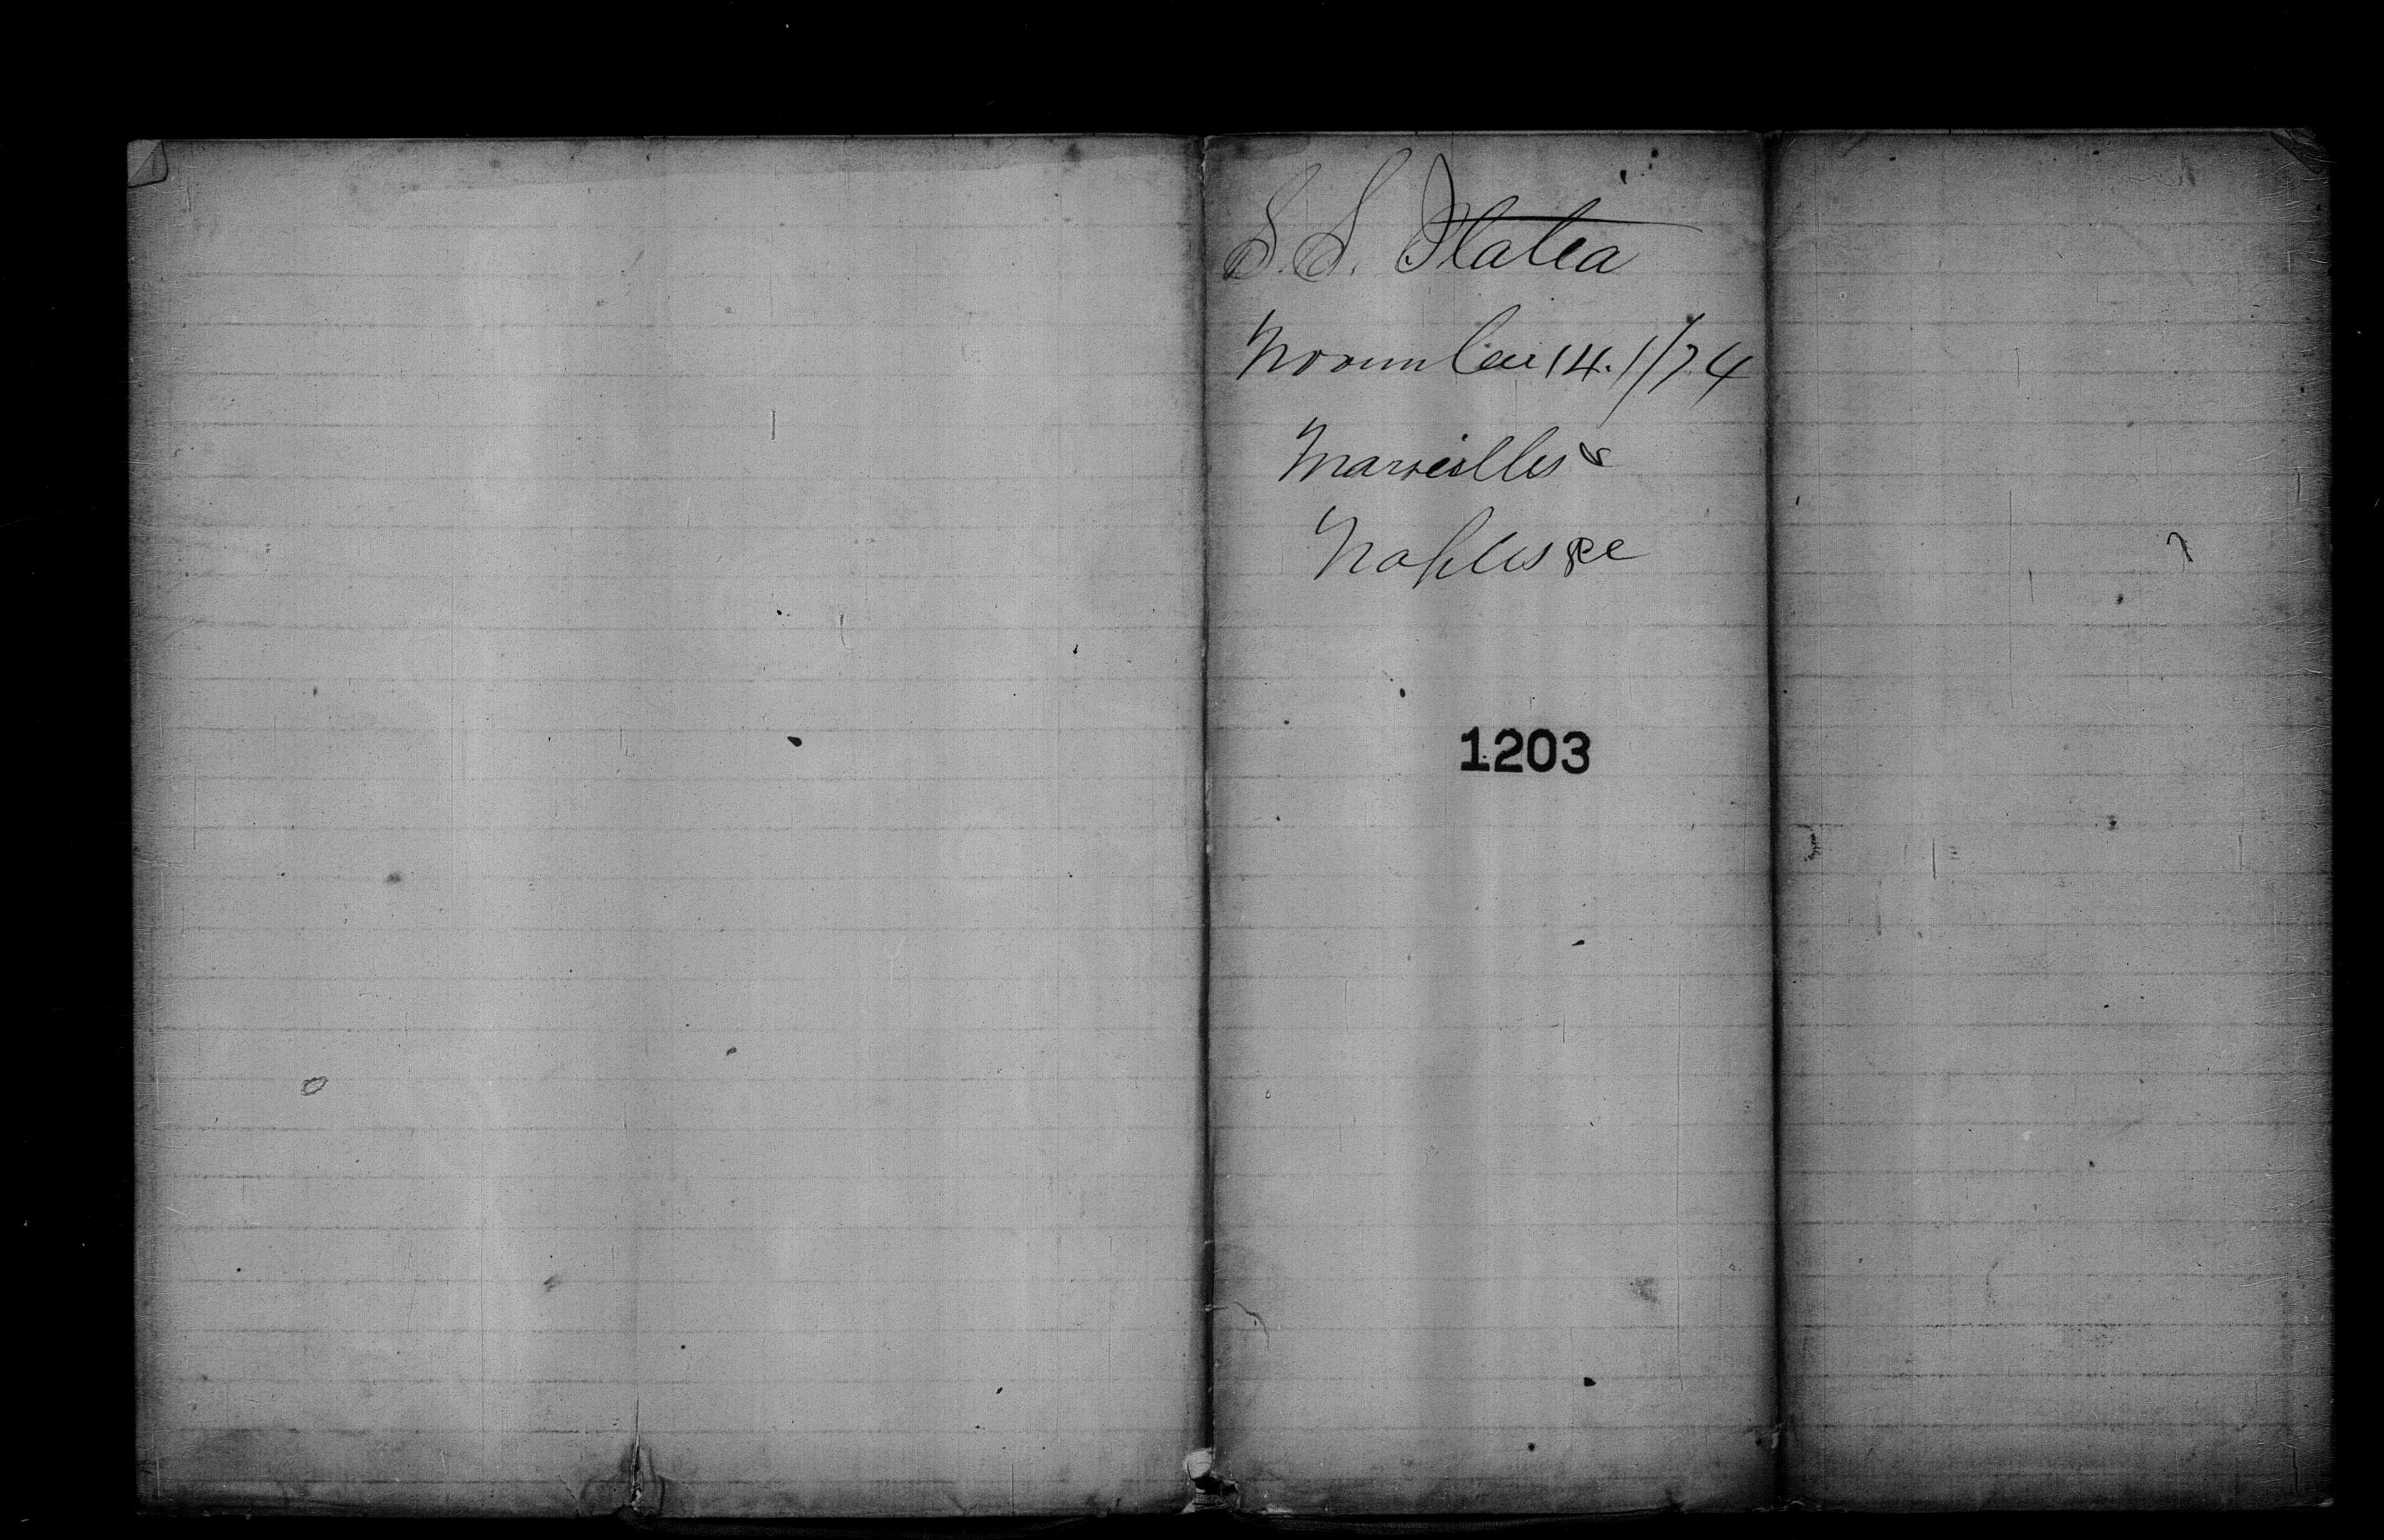 S.S. Italia
November 14. 1/74
Marseilles &
Naples &c
1203